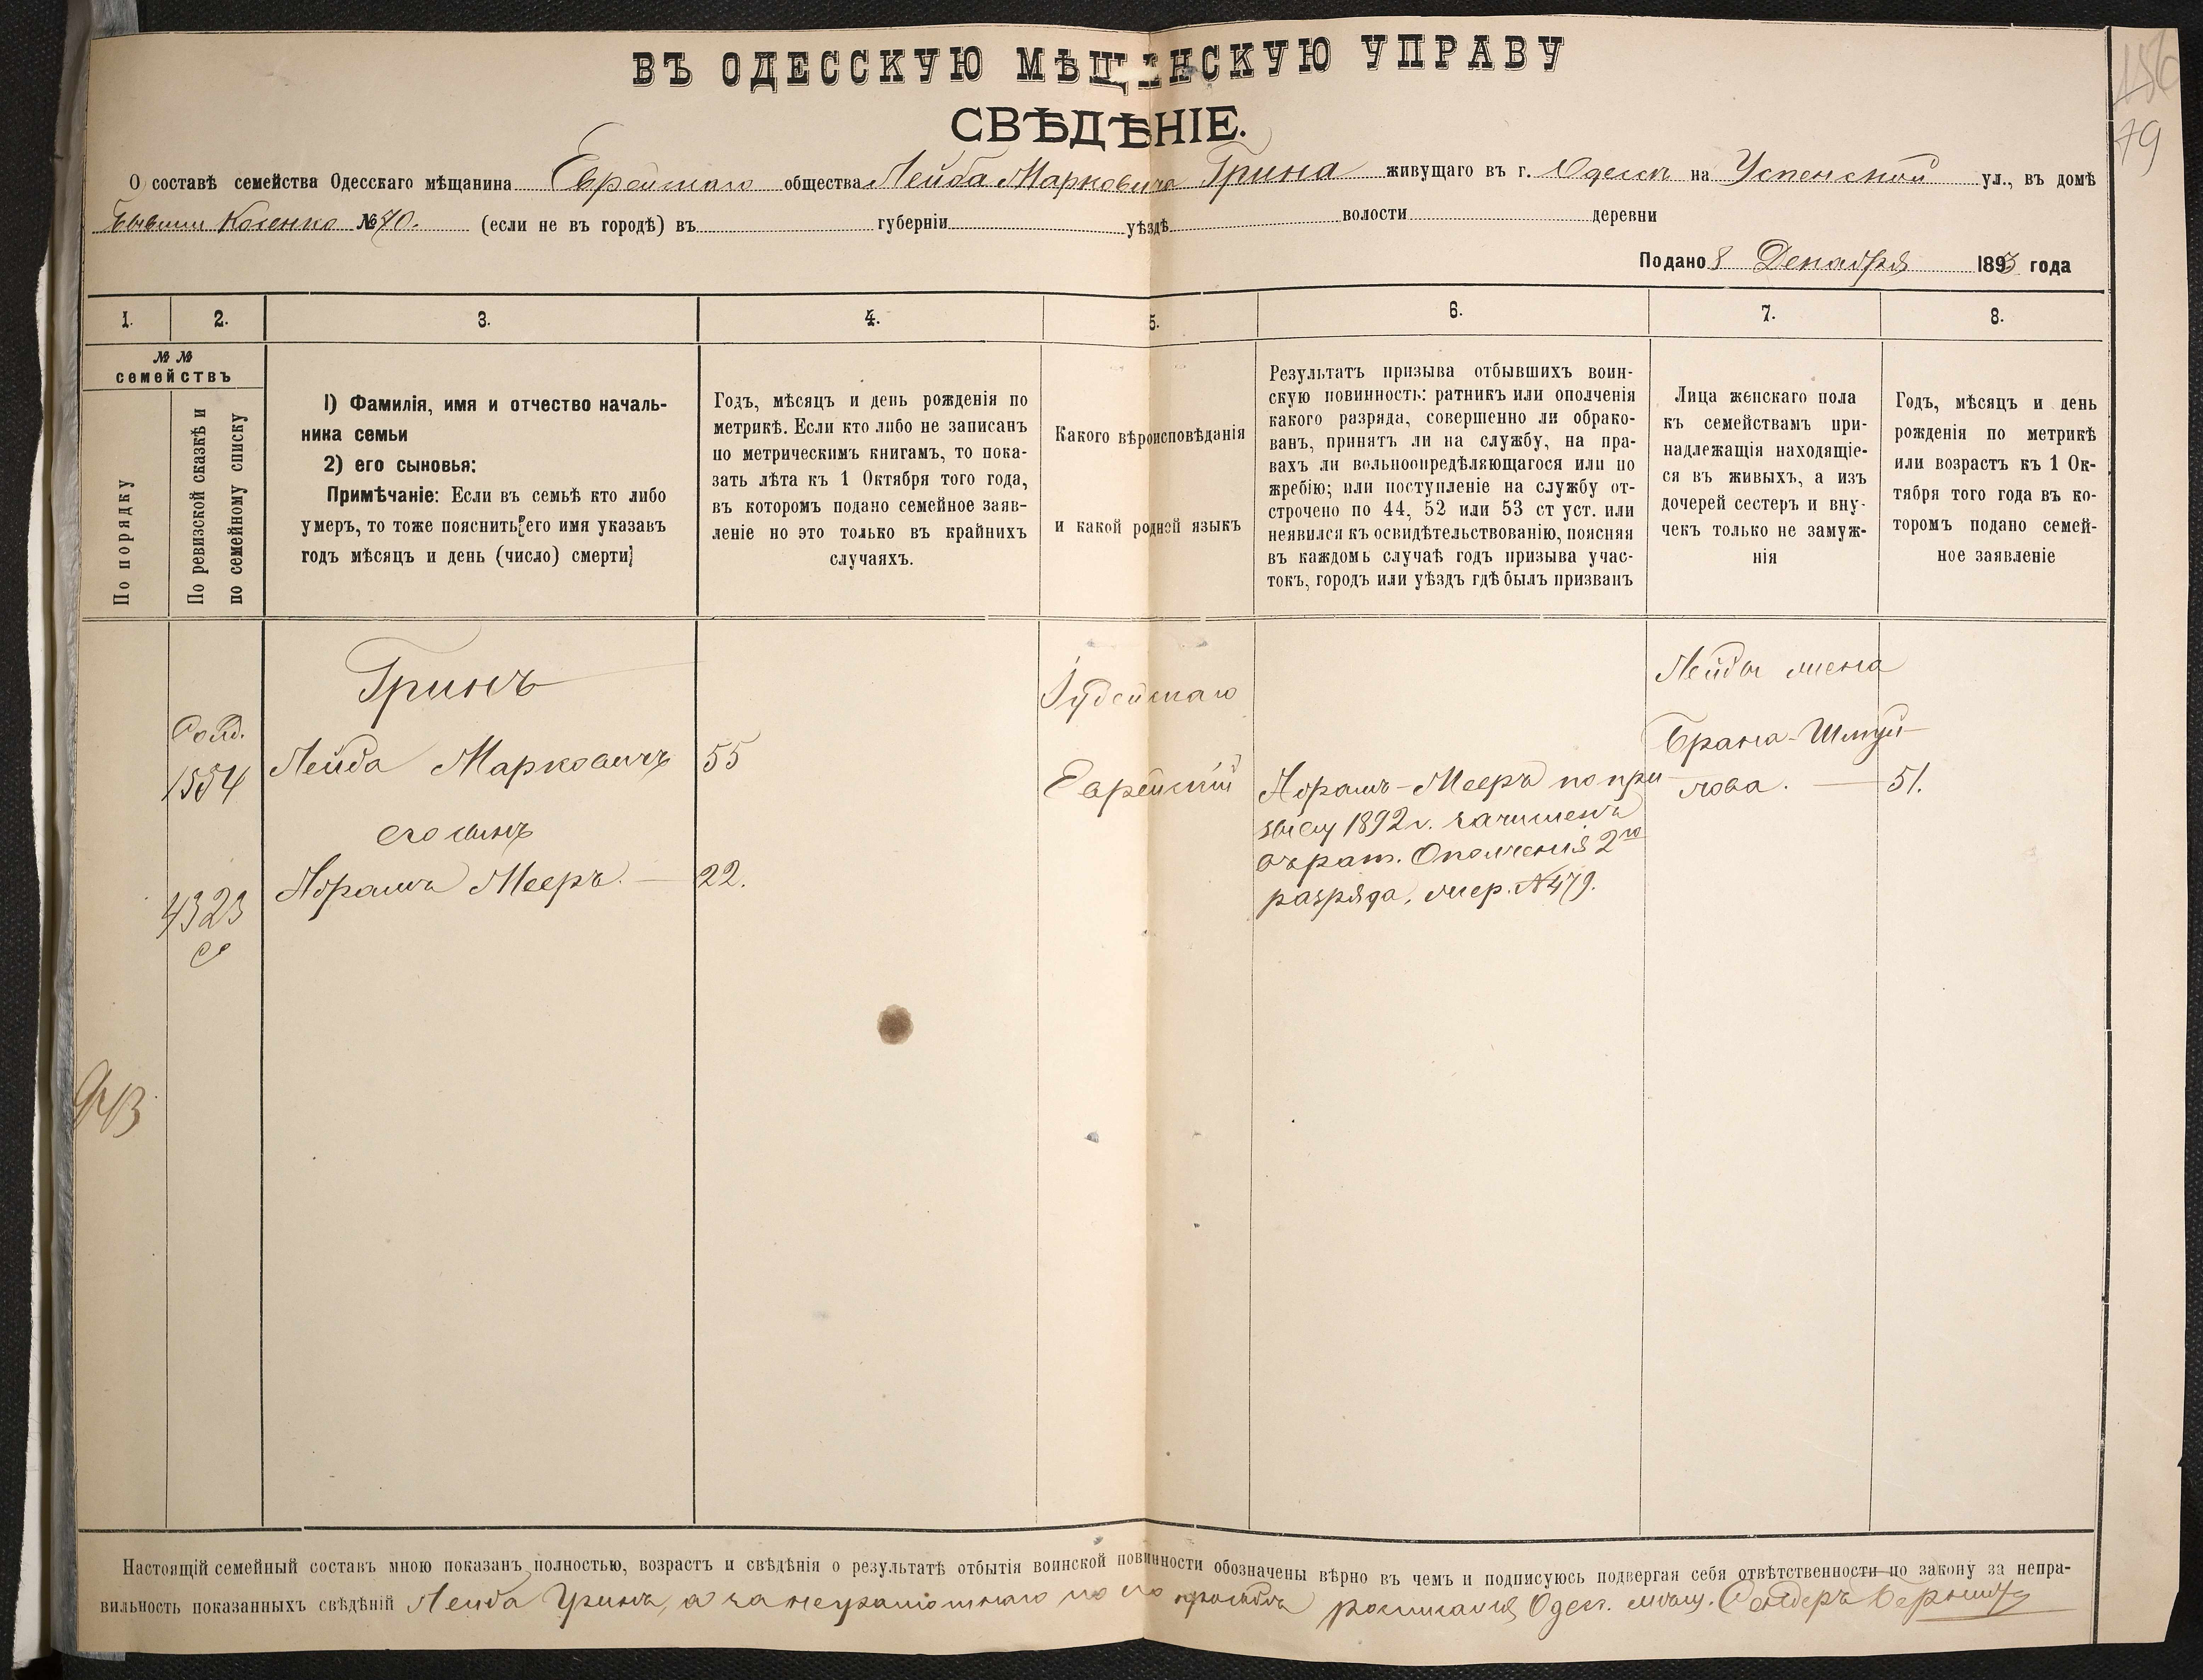 ВЪ ОДЕССКУЮ МѢЩАНСКУЮ УПРАВУ
СВѢДѢНІЕ.
156
79
О составѣ семейства Одесскаго мѣщанина Еврейскаго общества Лейба Марковича Грина живущаго въ г. Одессѣ на Успенской ул., въ домѣ
бывшем Косенко № 70. (если не въ городѣ) въ губерніи уѣздѣ волости деревни
Подано 8 Декабря 1893 года
1. 2. 3. 4. 5. 6. 7. 8.
№ №
семействъ
По порядку
По ревизской сказкѣ и
по семейному списку
1) Фамилія, имя и отчество началь-
ника семьи
2) его сыновья:
Примѣчаніе: Если въ семьѣ кто либо
умеръ, то тоже пояснить его имя указавъ
годъ мѣсяцъ и день (число) смерти
Годъ, мѣсяцъ и день рожденія по
метрикѣ. Если кто либо не записанъ
по метрическимъ книгамъ, то пока-
зать лѣта къ 1 Октября того года,
въ которомъ подано семейное заяв-
леніе но это только въ крайнихъ
случаяхъ.
Какого вѣроисповѣданія
и какой родной языкъ
Результатъ призыва отбывшихъ воин-
скую повинность: ратникъ или ополченія
какого разряда, совершенно ли обрако-
ванъ, принятъ ли на службу, на пра-
вахъ ли вольноопредѣляющагося или по
жребію; или поступленіе на службу от-
строчено по 44, 52 или 53 ст уст. или
неявился къ освидѣтельствованію, поясняя
въ каждомъ случаѣ годъ призыва учас-
токъ, городъ или уѣздъ гдѣ былъ призванъ
Лица женскаго пола
къ семействамъ при-
надлежащія находящіе-
ся въ живыхъ, а изъ
дочерей сестеръ и вну-
чекъ только не замуж-
нія
Годъ, мѣсяцъ и день
рожденія по метрикѣ
или возрастъ къ 1 Ок-
тября того года въ ко-
торомъ подано семей-
ное заявленіе
Гринъ
1554
Лейба Марковичъ 55
его сынъ
4323
Абрамъ Мееръ. — 22.
Іудейскаго
Еврейскій
Абрамъ-Мееръ по при
зыву 1892 г. зачисленъ
въ рат. Ополченія 2го
разряда, жер. № 479.
Лейбы жена
Брана-Шмуй-
лова. — 51.
Настоящій семейный составъ мною показанъ полностью, возрастъ и свѣдѣнія о результатѣ отбытія воинской повинности обозначены вѣрно въ чемъ и подписуюсь подвергая себя отвѣтственности по закону за непра-
вильность показанныхъ свѣдѣній Лейба Гринъ, а за неграмотнаго по его просьбѣ росписался Одес. мѣщ. Сендеръ